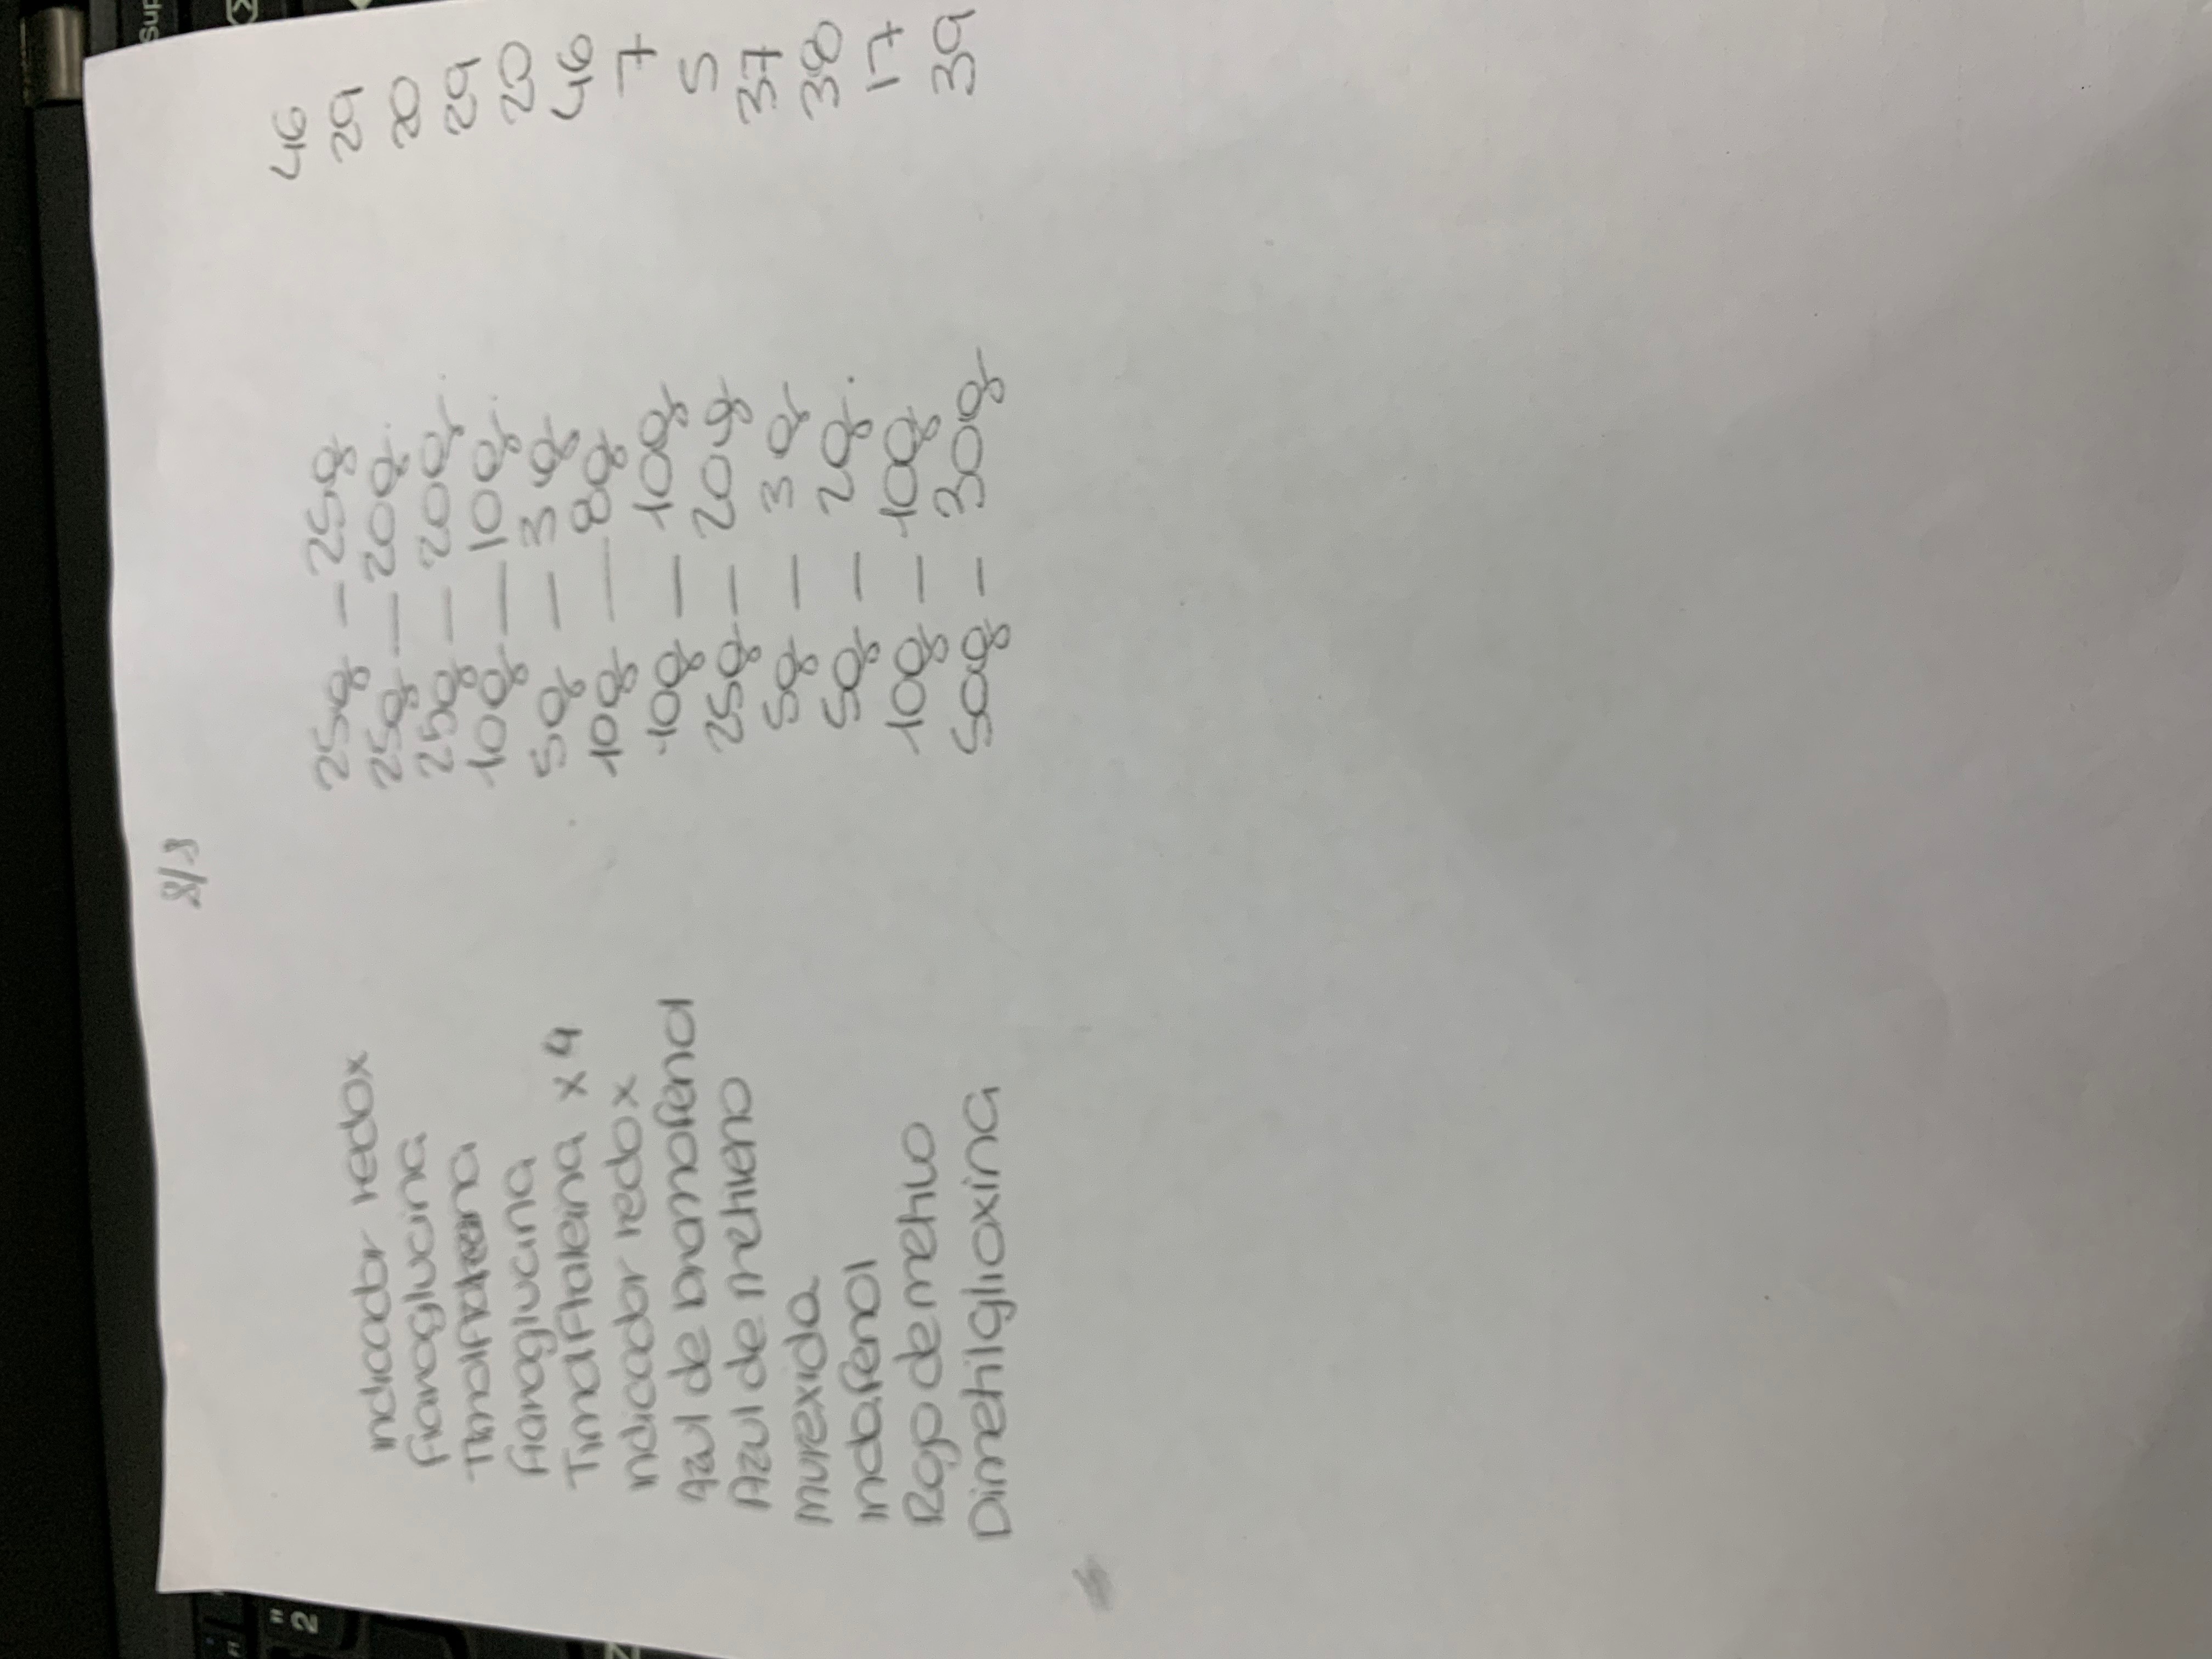 8/8
Indicador redox 25g — 25g 46
Floroglucina 25g — 20g. 29
Timolftaleina 25g — 20g. 20
Floroglucina 10g — 10g. 29
Timolftaleina x 4 5g — 3g 20
Indicador redox 10g — 8g 46
Azul de bromofenol 10g — 10g 7
Azul de metileno 25g — 20g 5
Murexida 5g — 3g 37
Indofenol 5g — 2g. 38
Rojo de metilo 10g — 10g 17
Dimetilglioxina 50g — 30g 39
2
Sup